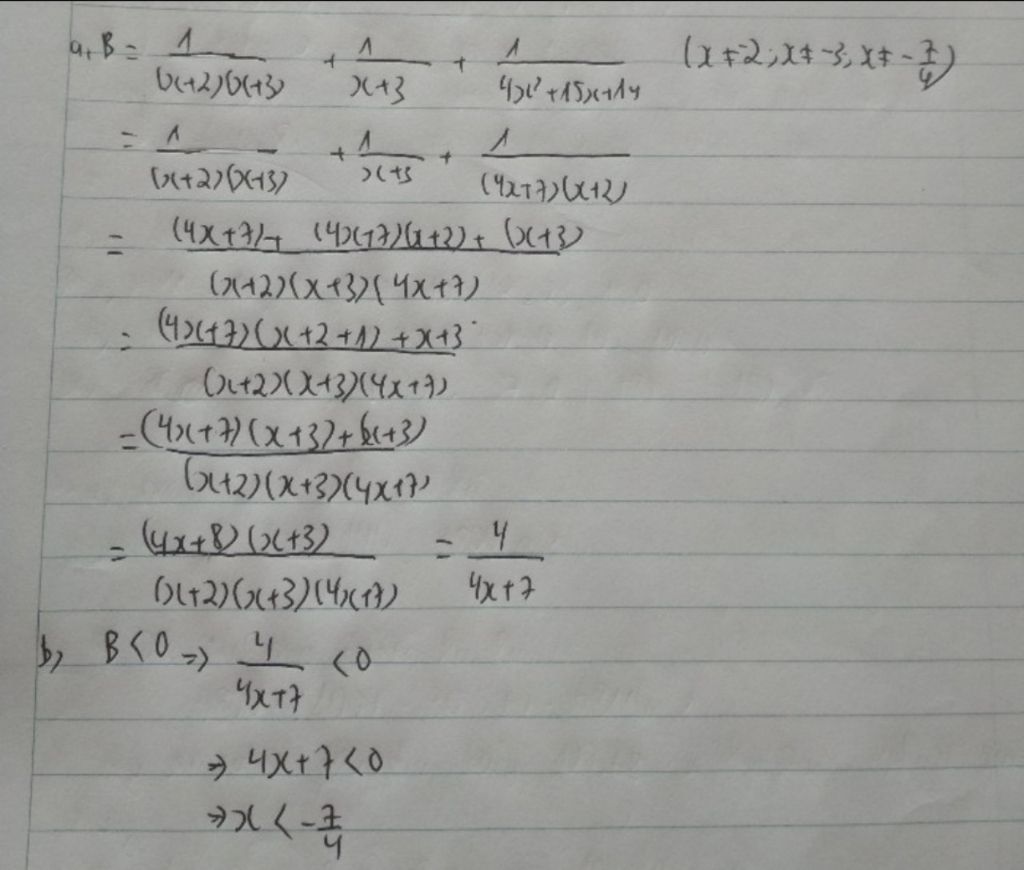 a, B = 1/((x+2)(x+3)) + 1/(x+3) + 1/(4x²+15x+14) (x ≠ -2; x ≠ -3; x ≠ -7/4)
= 1/((x+2)(x+3)) + 1/(x+3) + 1/((4x+7)(x+2))
= ((4x+7) + (4x+7)(x+2) + (x+3))/((x+2)(x+3)(4x+7))
= ((4x+7)(x+2+1) + x+3)/((x+2)(x+3)(4x+7))
= ((4x+7)(x+3) + (x+3))/((x+2)(x+3)(4x+7))
= ((4x+8)(x+3))/((x+2)(x+3)(4x+7)) = 4/(4x+7)
b, B < 0 => 4/(4x+7) < 0
=> 4x+7 < 0
=> x < -7/4